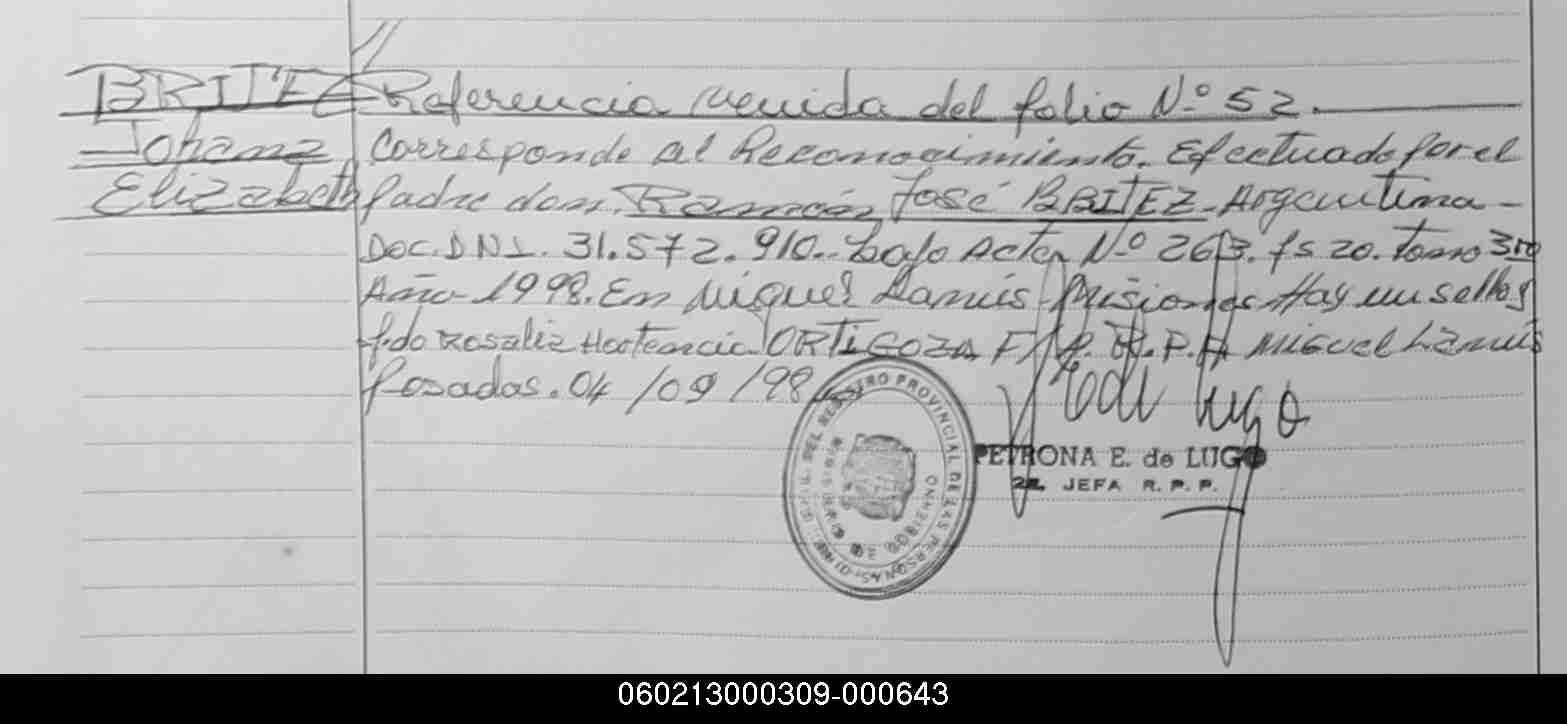 BRITEZ Referencia venida del folio Nº 52.
Johana Corresponde al Reconocimiento. Efectuado por el
Elizabeth padre don. Ramón José BRITEZ - Argentina -
Doc. DNI. 31.572.910.. bajo Acta Nº 263. fs 20. Tomo 3ro
Año - 1998. En Miguel Lanús - Misiones Hay un sello y
fdo Rosalia Hortencia ORTIGOZA R. P. P. Miguel Lanús
Posadas. 04 /09 /98
PETRONA E. de LUGO
2a. JEFA R. P. P.
REGISTRO PROVINCIAL DE LAS PERSONAS
MISIONES
060213000309-000643